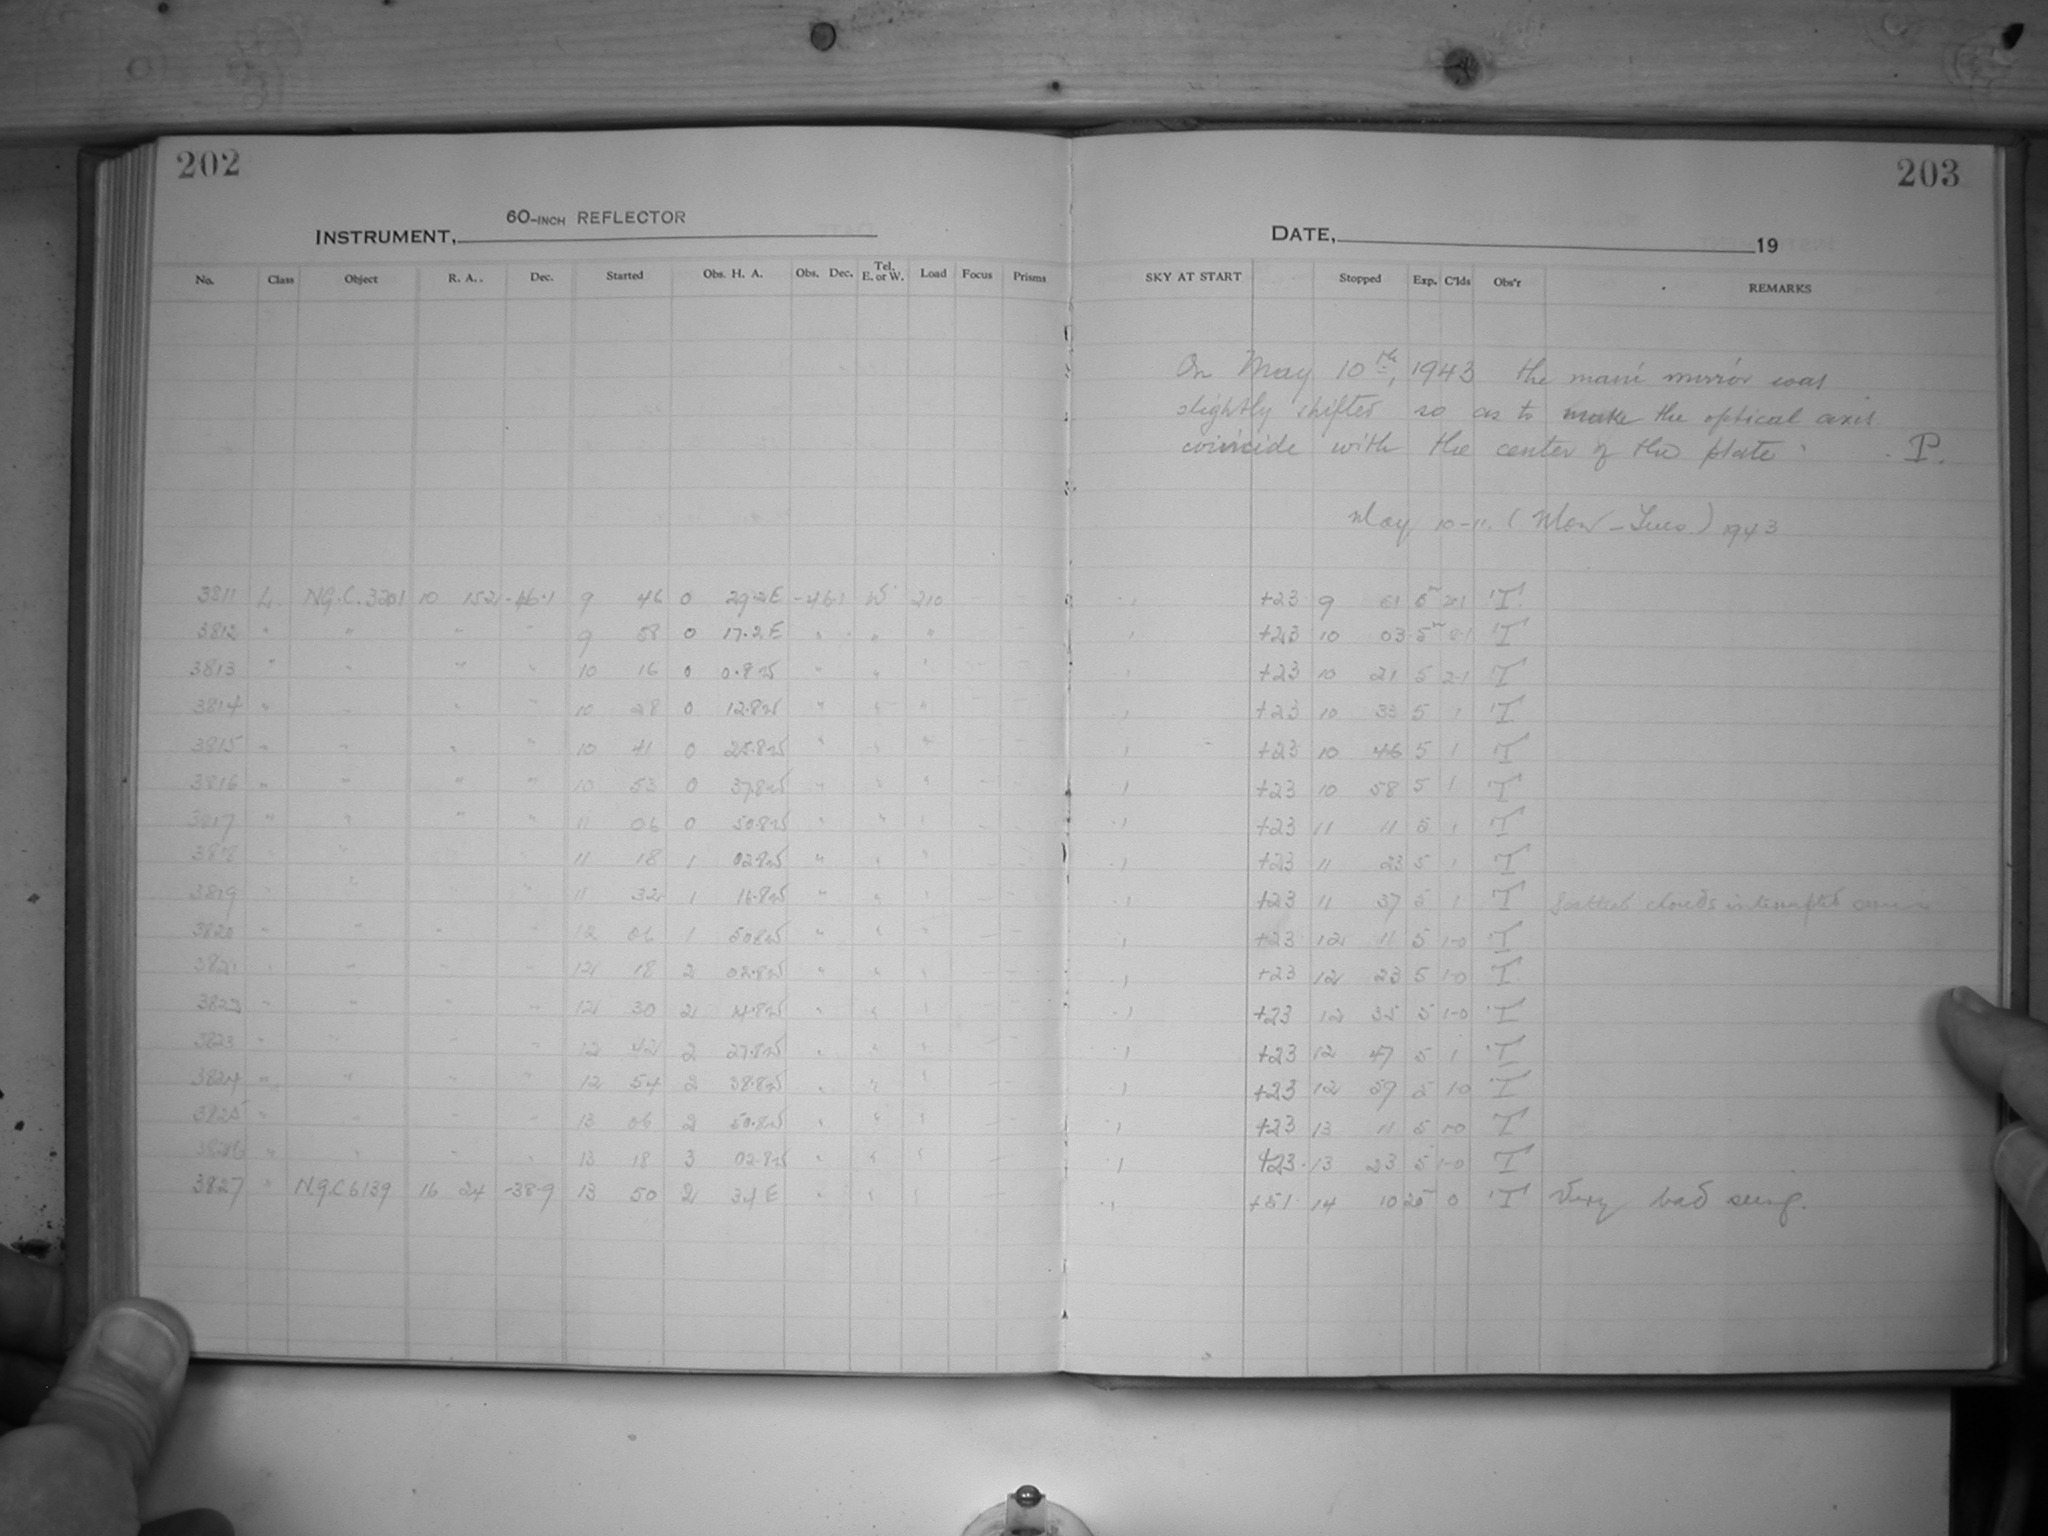 202
203
INSTRUMENT, 60-INCH REFLECTOR
DATE, 19
No. Class Object R. A. Dec. Started Obs. H. A. Obs. Dec. Tel. E. or W. Load Focus Prisms SKY AT START Stopped Exp. C'lds Obs'r REMARKS
On May 10th, 1943 the main mirror was
slightly shifted so as to make the optical axis
coincide with the center of the plate. P.
May 10-11. (Mon-Tues.) 1943
3811 L N.G.C. 3201 10 152 -46.1 9 46 0 29.2E -46.1 W 210 +23 9 51 5 2-1 T
3812 " " " " 9 58 0 17.2E " " " +23 10 03 5 T
3813 " " " " 10 16 0 0.8W " " " +23 10 21 5 2-1 T
3814 " " " " 10 28 0 12.8W " " " +23 10 33 5 1 T
3815 " " " " 10 41 0 25.8W " " " +23 10 46 5 1 T
3816 " " " " 10 53 0 37.8W " " " +23 10 58 5 1 T
3817 " " " " 11 06 0 50.8W " " " +23 11 11 5 1 T
3818 " " " " 11 18 1 02.8W " " " +23 11 23 5 1 T
3819 " " " " 11 32 1 16.8W " " " +23 11 37 5 1 T Scattered clouds interrupted
3820 " " " " 12 06 1 50.8W " " " +23 12 11 5 1-0 T
3821 " " " " 12 18 2 02.8W " " " +23 12 23 5 1-0 T
3822 " " " " 12 30 2 14.8W " " " +23 12 35 5 1-0 T
3823 " " " " 12 42 2 27.8W " " " +23 12 47 5 1 T
3824 " " " " 12 54 2 38.8W " " " +23 12 59 5 1-0 T
3825 " " " " 13 06 2 50.8W " " " +23 13 11 5 1-0 T
3826 " " " " 13 18 3 02.8W " " " +23 13 23 5 1-0 T
3827 " N.G.C 6139 16 24 -38.9 13 50 2 34 E " " " +51 14 10 20 0 T Very bad seeing.